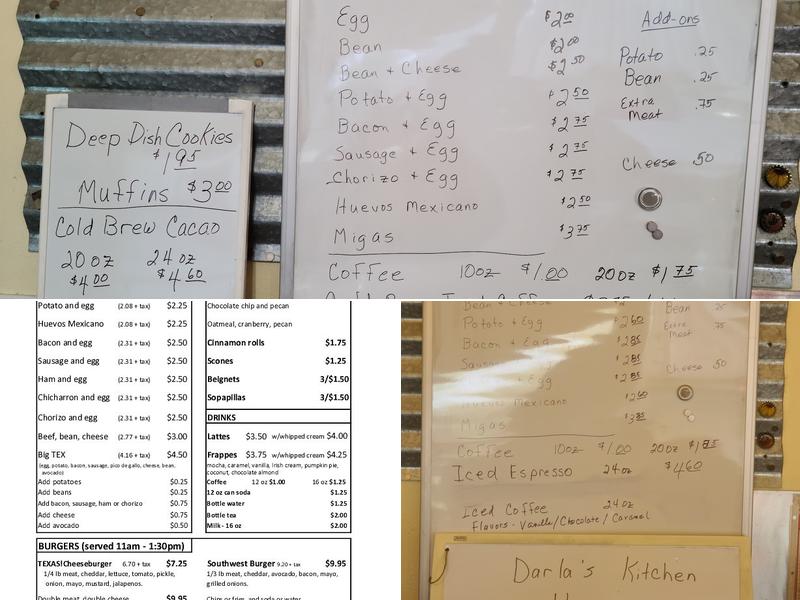 Deep Dish Cookies
$1.95
Muffins $3.00
Cold Brew Cacao
20 oz 24 oz
$4.00 $4.60
Egg $2.00
Bean $2.00
Bean + Cheese $2.50
Potato + Egg $2.50
Bacon + Egg $2.75
Sausage + Egg $2.75
Chorizo + Egg $2.75
Huevos Mexicano $2.50
Migas $3.75
Coffee 10oz $1.00 20oz $1.75
Add-ons
Potato .25
Bean .25
Extra Meat .75
Cheese .50
Potato and egg (2.08 + tax) $2.25
Huevos Mexicano (2.08 + tax) $2.25
Bacon and egg (2.31 + tax) $2.50
Sausage and egg (2.31 + tax) $2.50
Ham and egg (2.31 + tax) $2.50
Chicharron and egg (2.31 + tax) $2.50
Chorizo and egg (2.31 + tax) $2.50
Beef, bean, cheese (2.77 + tax) $3.00
Big TEX (4.16 + tax) $4.50
(egg, potato, bacon, sausage, pico de gallo, cheese, bean,
avocado)
Add potatoes $0.25
Add beans $0.25
Add bacon, sausage, ham or chorizo $0.75
Add cheese $0.75
Add avocado $0.50
Chocolate chip and pecan
Oatmeal, cranberry, pecan
Cinnamon rolls $1.75
Scones $1.25
Beignets 3/$1.50
Sopapillas 3/$1.50
DRINKS
Lattes $3.50 w/whipped cream $4.00
Frappes $3.75 w/whipped cream $4.25
mocha, caramel, vanilla, Irish cream, pumpkin pie,
coconut, chocolate almond
Coffee 12 oz $1.00 16 oz $1.25
12 oz can soda $1.25
Bottle water $1.25
Bottle tea $2.00
Milk - 16 oz $2.00
BURGERS (served 11am - 1:30pm)
TEXAS!Cheeseburger 6.70 + tax $7.25
1/4 lb meat, cheddar, lettuce, tomato, pickle,
onion, mayo, mustard, jalapenos.
Double meat, double cheese $9.95
Southwest Burger 9.20 + tax $9.95
1/3 meat, cheddar, avocado, bacon, mayo,
grilled onions.
Chips or fries, and soda or water
Bean + Cheese
Potato + Egg $2.60
Bacon + Egg $2.85
Sausage + Egg $2.85
+ Egg $2.85
Huevos Mexicano $2.60
Migas $3.85
Bean .25
Extra Meat .75
Cheese .50
Coffee 10oz $1.00 20oz
Iced Espresso 24oz $4.60
Iced Coffee 24oz
Flavors - Vanilla/Chocolate/Caramel
Darla's Kitchen